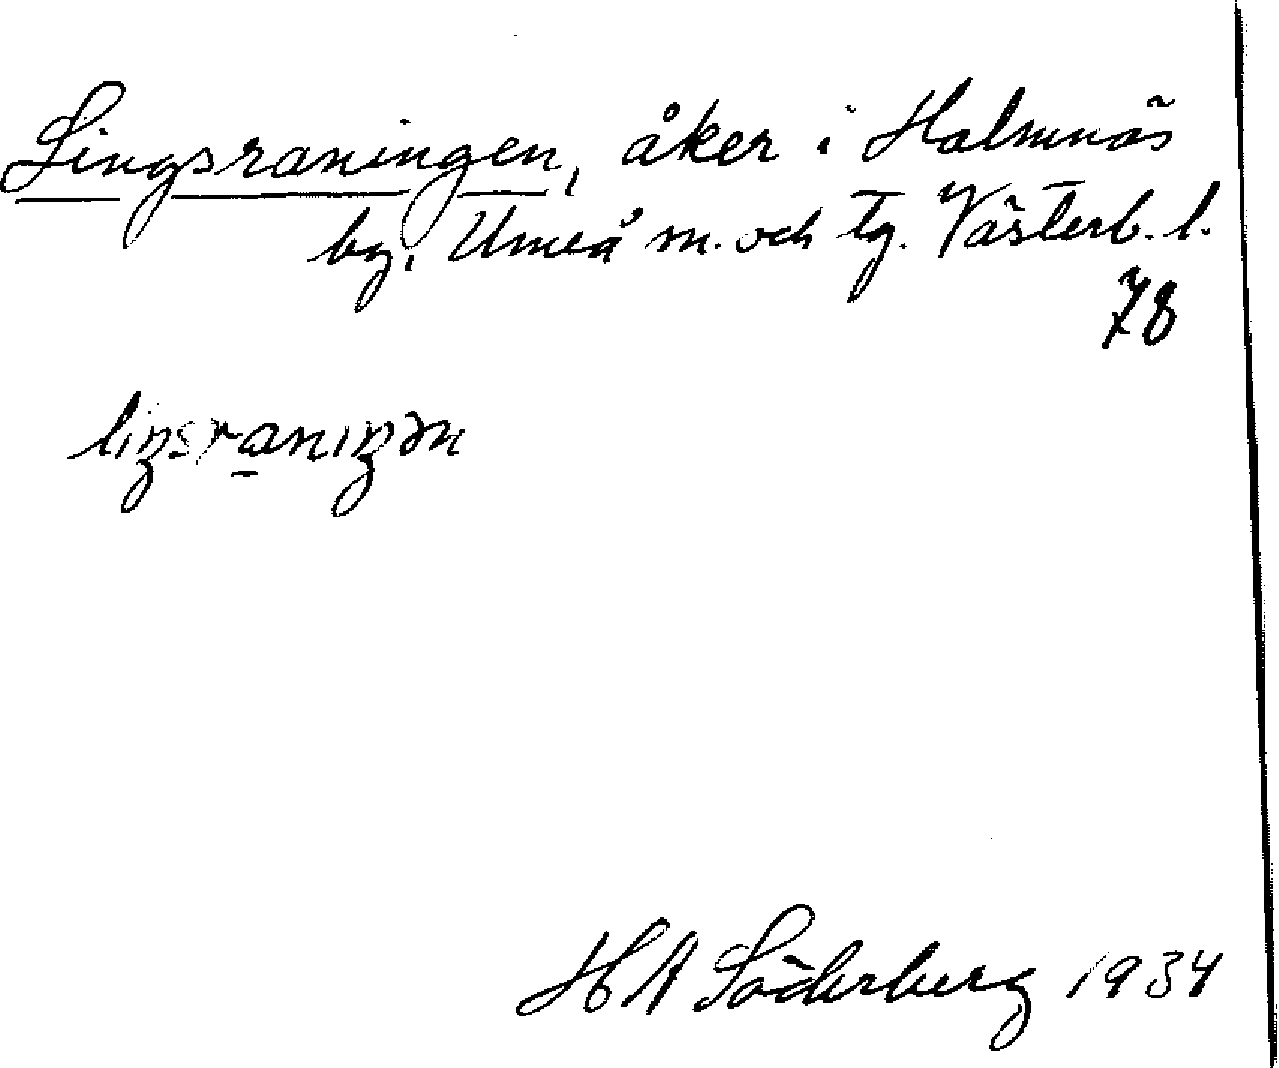 Lingsraningen, åker i Holmnäs
by, Umeå m. och tg. Västerb. l.
78
liŋsranıŋən
HA Söderberg 1934